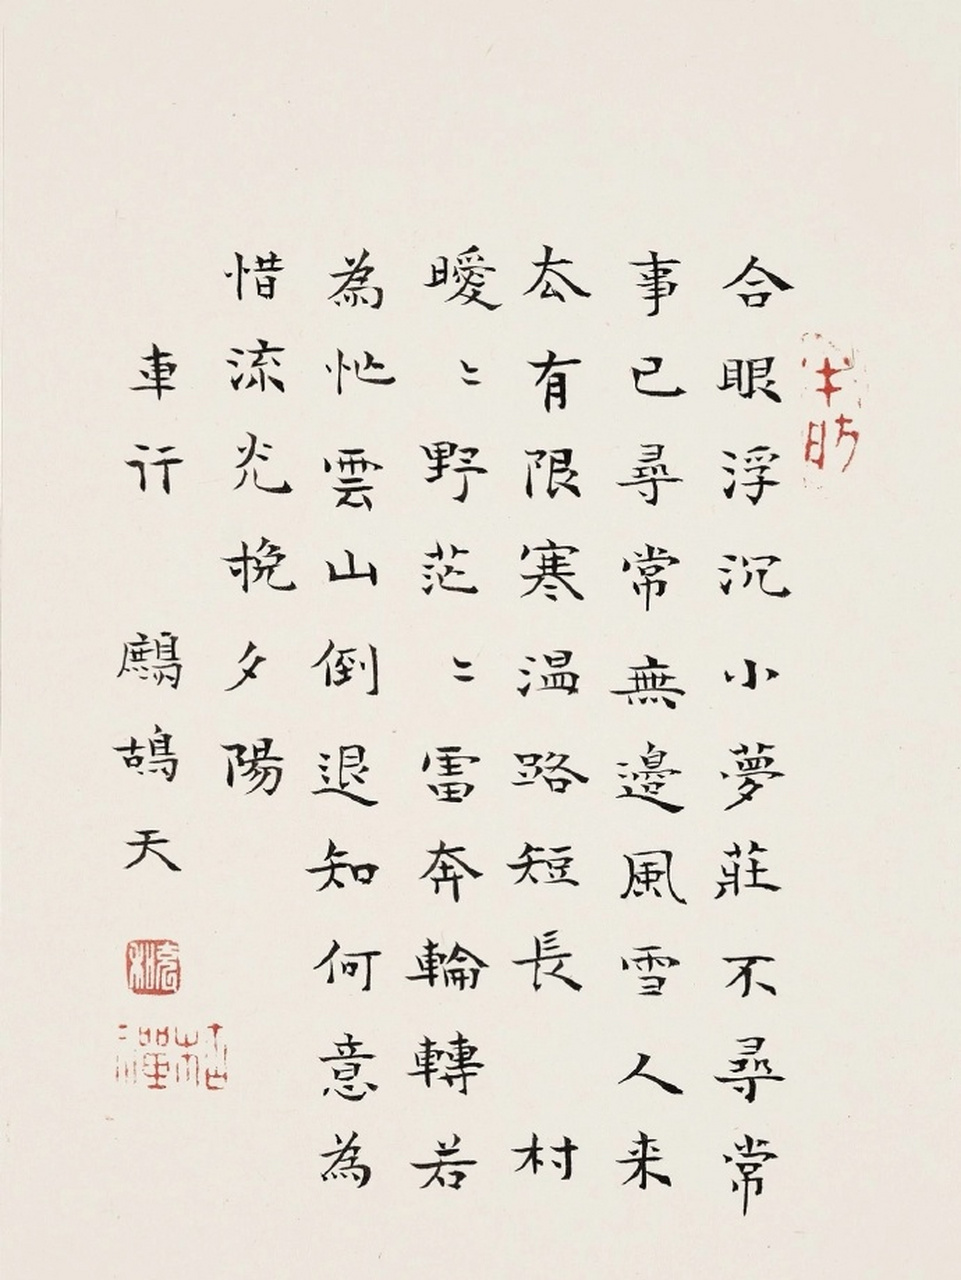 合眼浮沉小夢莊不尋常
事已尋常無邊風雪人来
去有限寒温路短長 村
曖〻野茫〻雷奔輪轉若
為忙雲山倒退知何意為
惜流光挽夕陽
車行 鷓鴣天